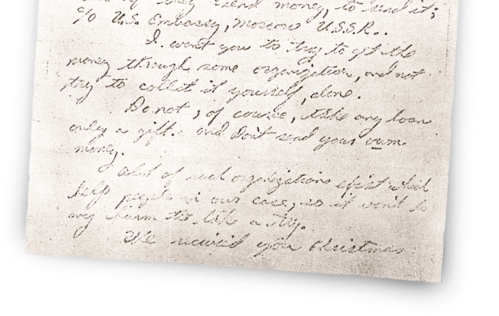 send money, to send it;
c/o U.S. Embassy, Moscow U.S.S.R..
I want you to try to get the
money through some organization, and not
try to collit it yourself, alone.
Do not, of course, take any loan
only a gift. and Don't send your own
money.
alot of such organizations exist which
help people in our case, so it won't do
any harm to a try.
We recived your Christmas